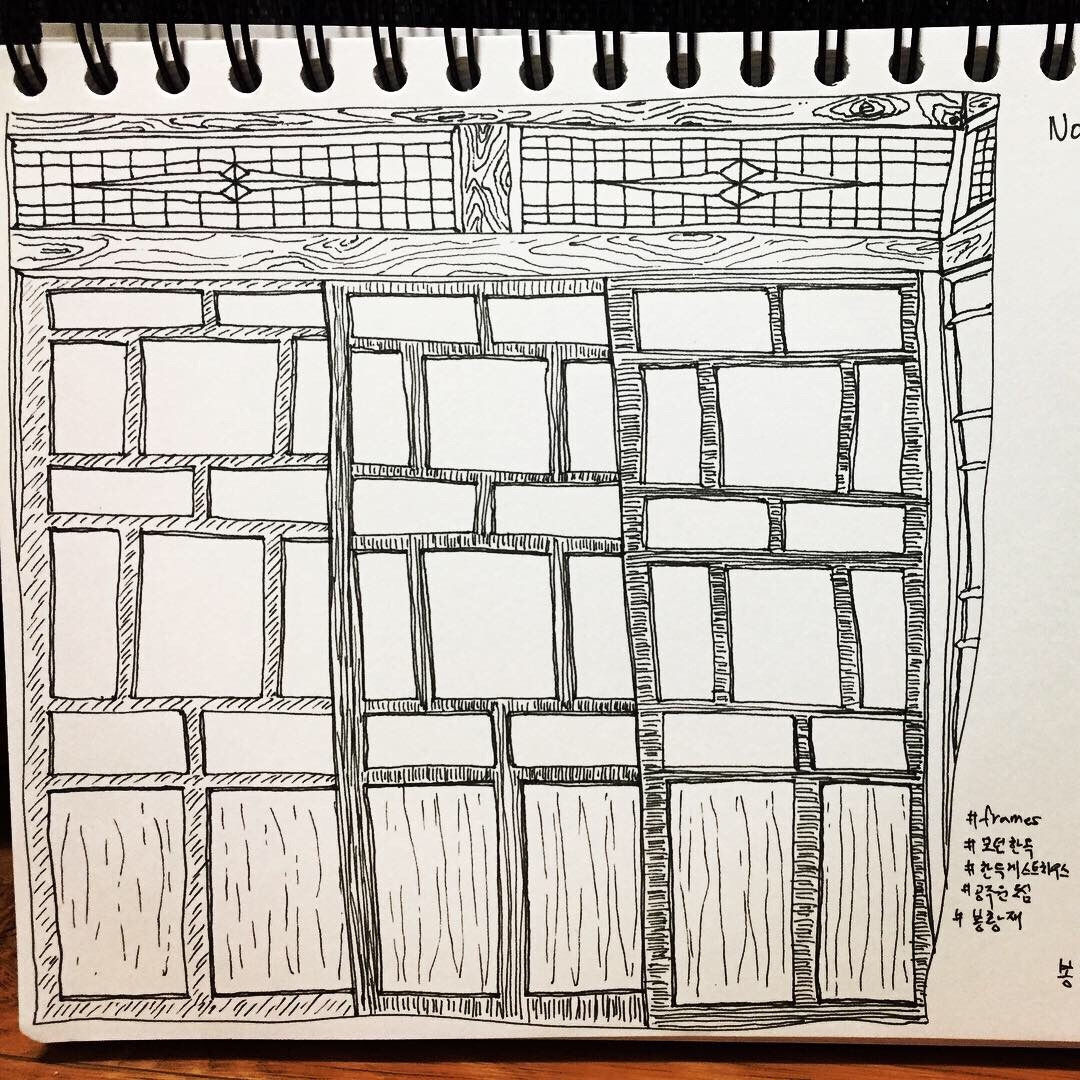 No
#frames
#모던한옥
#한옥게스트하우스
#공주원도심
#봉황재
봉